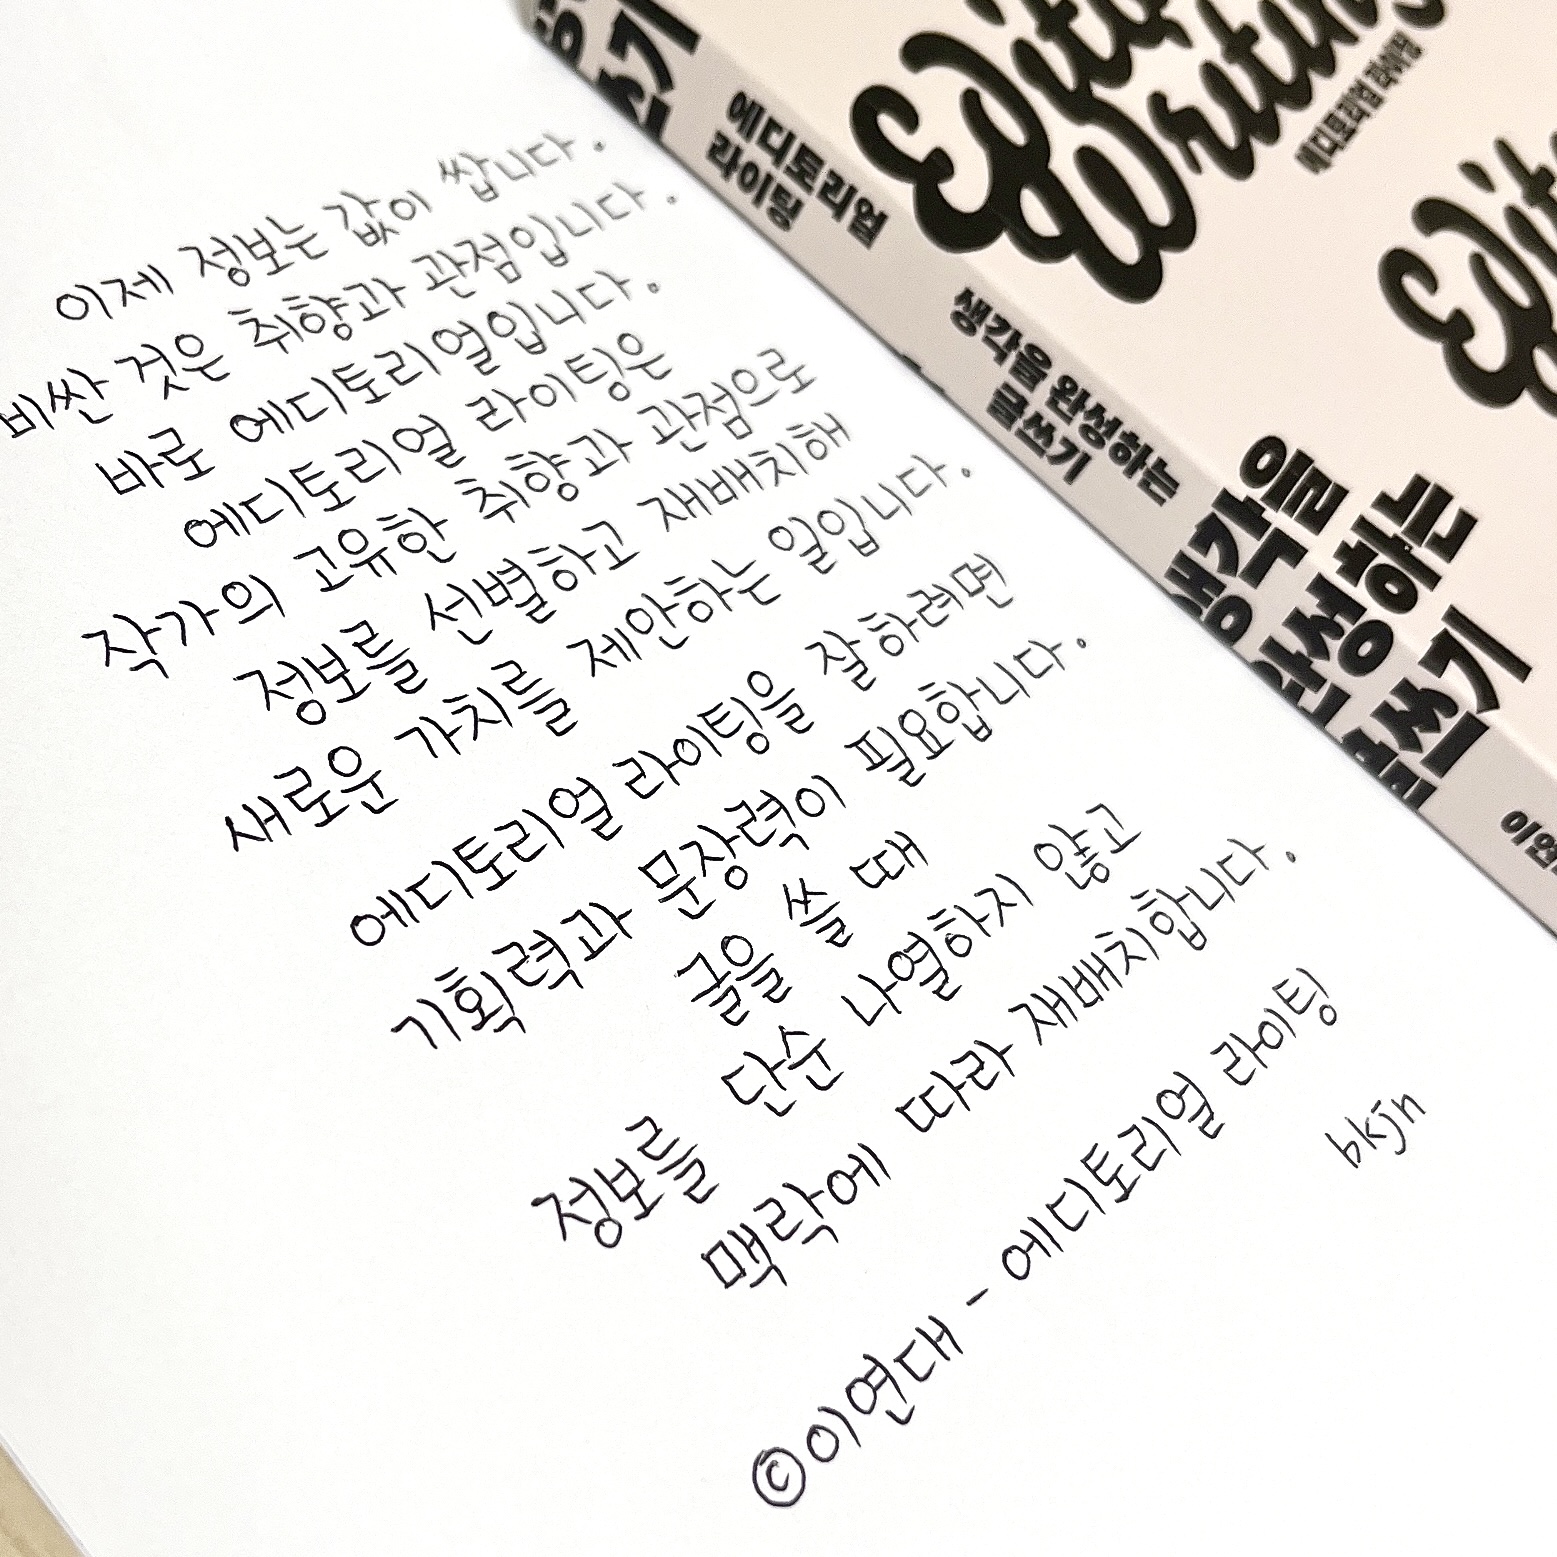 이제 정보는 값이 쌉니다.
비싼 것은 취향과 관점입니다.
바로 에디토리얼입니다.
에디토리얼 라이팅은
작가의 고유한 취향과 관점으로
정보를 선별하고 재배치해
새로운 가치를 제안하는 일입니다.
에디토리얼 라이팅을 잘하려면
기획력과 문장력이 필요합니다.
글을 쓸 때
정보를 단순 나열하지 않고
맥락에 따라 재배치합니다.
©이연대 - 에디토리얼 라이팅
bkjn
에디토리얼
라이팅
생각을 완성하는
글쓰기
에디토리얼 라이팅
생각을
완성하는
글쓰기